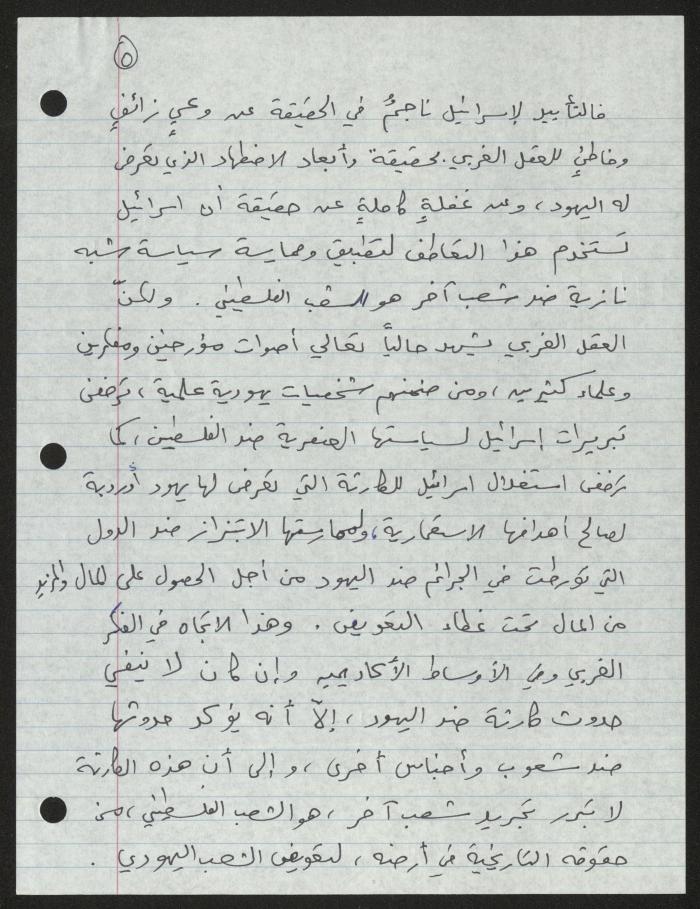 ٥
فالتأييد لإسرائيل ناجمٌ في الحقيقة عن وعيٍ زائفٍ
وخاطئٍ للعقل الغربي بحقيقة وأبعاد الاضطهاد الذي تعرض
له اليهود، وعن غفلةٍ كاملةٍ عن حقيقة أن اسرائيل
تستخدم هذا التعاطف لتطبيق وممارسة سياسة شبه
نازية ضد شعب آخر هو الشعب الفلسطيني. ولكنّ
العقل الغربي يشهد حالياً تعالي أصوات مؤرخين ومفكرين
وعلماء كثيرين، ومن ضمنهم شخصيات يهودية علمية، ترفض
تبريرات إسرائيل لسياستها العنصرية ضد الفلسطينيين، كما
ترفض استغلال اسرائيل للكارثة التي تعرض لها يهود أوروبة
لصالح أهدافها الاستعمارية، ولممارستها الابتزاز ضد الدول
التي تورطت في الجرائم ضد اليهود من أجل الحصول على المال والمزيد
من المال تحت غطاء التعويض. وهذا الاتجاه في الفكر
الغربي وفي الأوساط الأكاديمية وإن كان لا ينفي
حدوث كارثة ضد اليهود، إلاّ أنه يؤكد حدوثها
ضد شعوب وأجناس أخرى، وإلى أن هذه الكارثة
لا تبرر تجريد شعب آخر، هو الشعب الفلسطيني، من
حقوقه التاريخية في أرضه، لتعويض الشعب اليهودي.